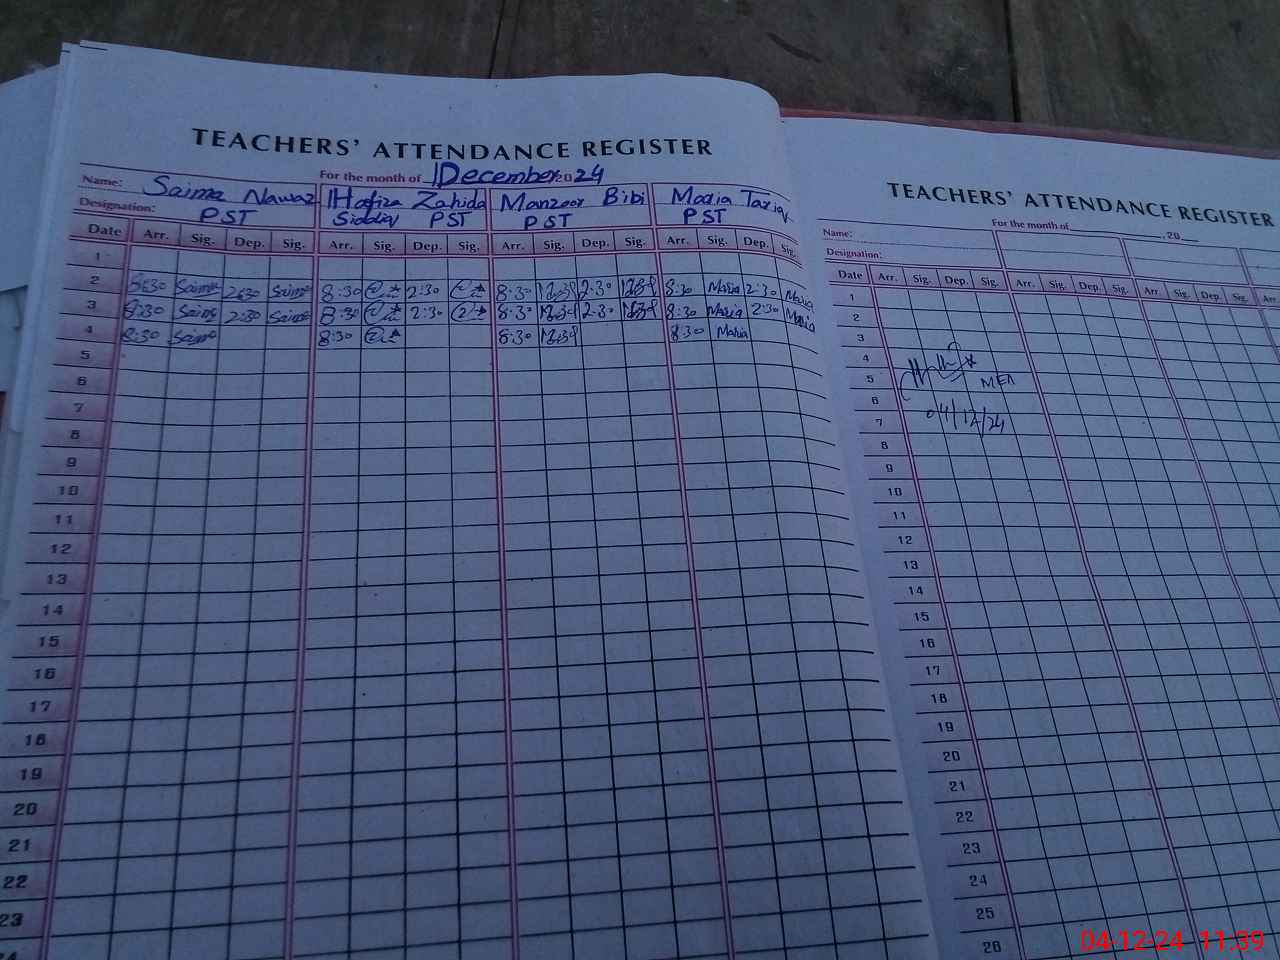 TEACHERS' ATTENDANCE REGISTER
For the month of December 2024
Name: Saima Nawaz Hafiza Zahida Manzoor Bibi Maria Tariq
Designation: PST Siddiq PST PST PST
Date Arr. Sig. Dep. Sig. Arr. Sig. Dep. Sig. Arr. Sig. Dep. Sig. Arr. Sig. Dep. Sig.
1
2 8:30 Saima 2:30 Saima 8:30 2:30 8:30 2:30 8:30 Maria 2:30 Maria
3 8:30 Saima 2:30 Saima 8:30 2:30 8:30 2:30 8:30 Maria 2:30 Maria
4 8:30 Saima 8:30 8:30 8:30 Maria
5
6
7
8
9
10
11
12
13
14
15
16
17
18
19
20
21
22
23
24
TEACHERS' ATTENDANCE REGISTER
For the month of , 20
Name:
Designation:
Date Arr. Sig. Dep. Sig. Arr. Sig. Dep. Sig. Arr. Sig. Dep. Sig. Arr.
1
2
3
4
5 MEA
6
7 04/12/24
8
9
10
11
12
13
14
15
16
17
18
19
20
21
22
23
24
25
26
04-12-24 11:39